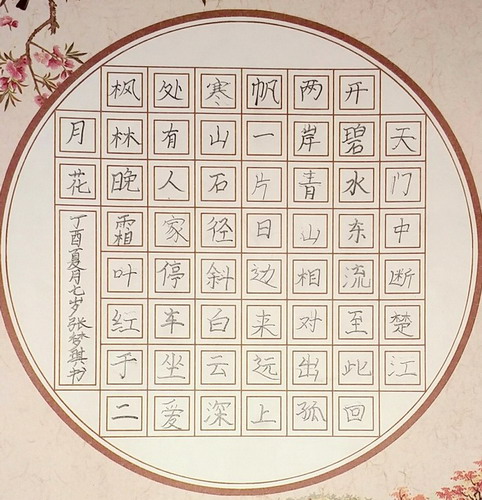 天门中断楚江
开碧水东流至此回
两岸青山相对出孤
帆一片日边来远上
寒山石径斜白云深
处有人家停车坐爱
枫林晚霜叶红于二
月花
丁酉夏月七岁张梦琪书